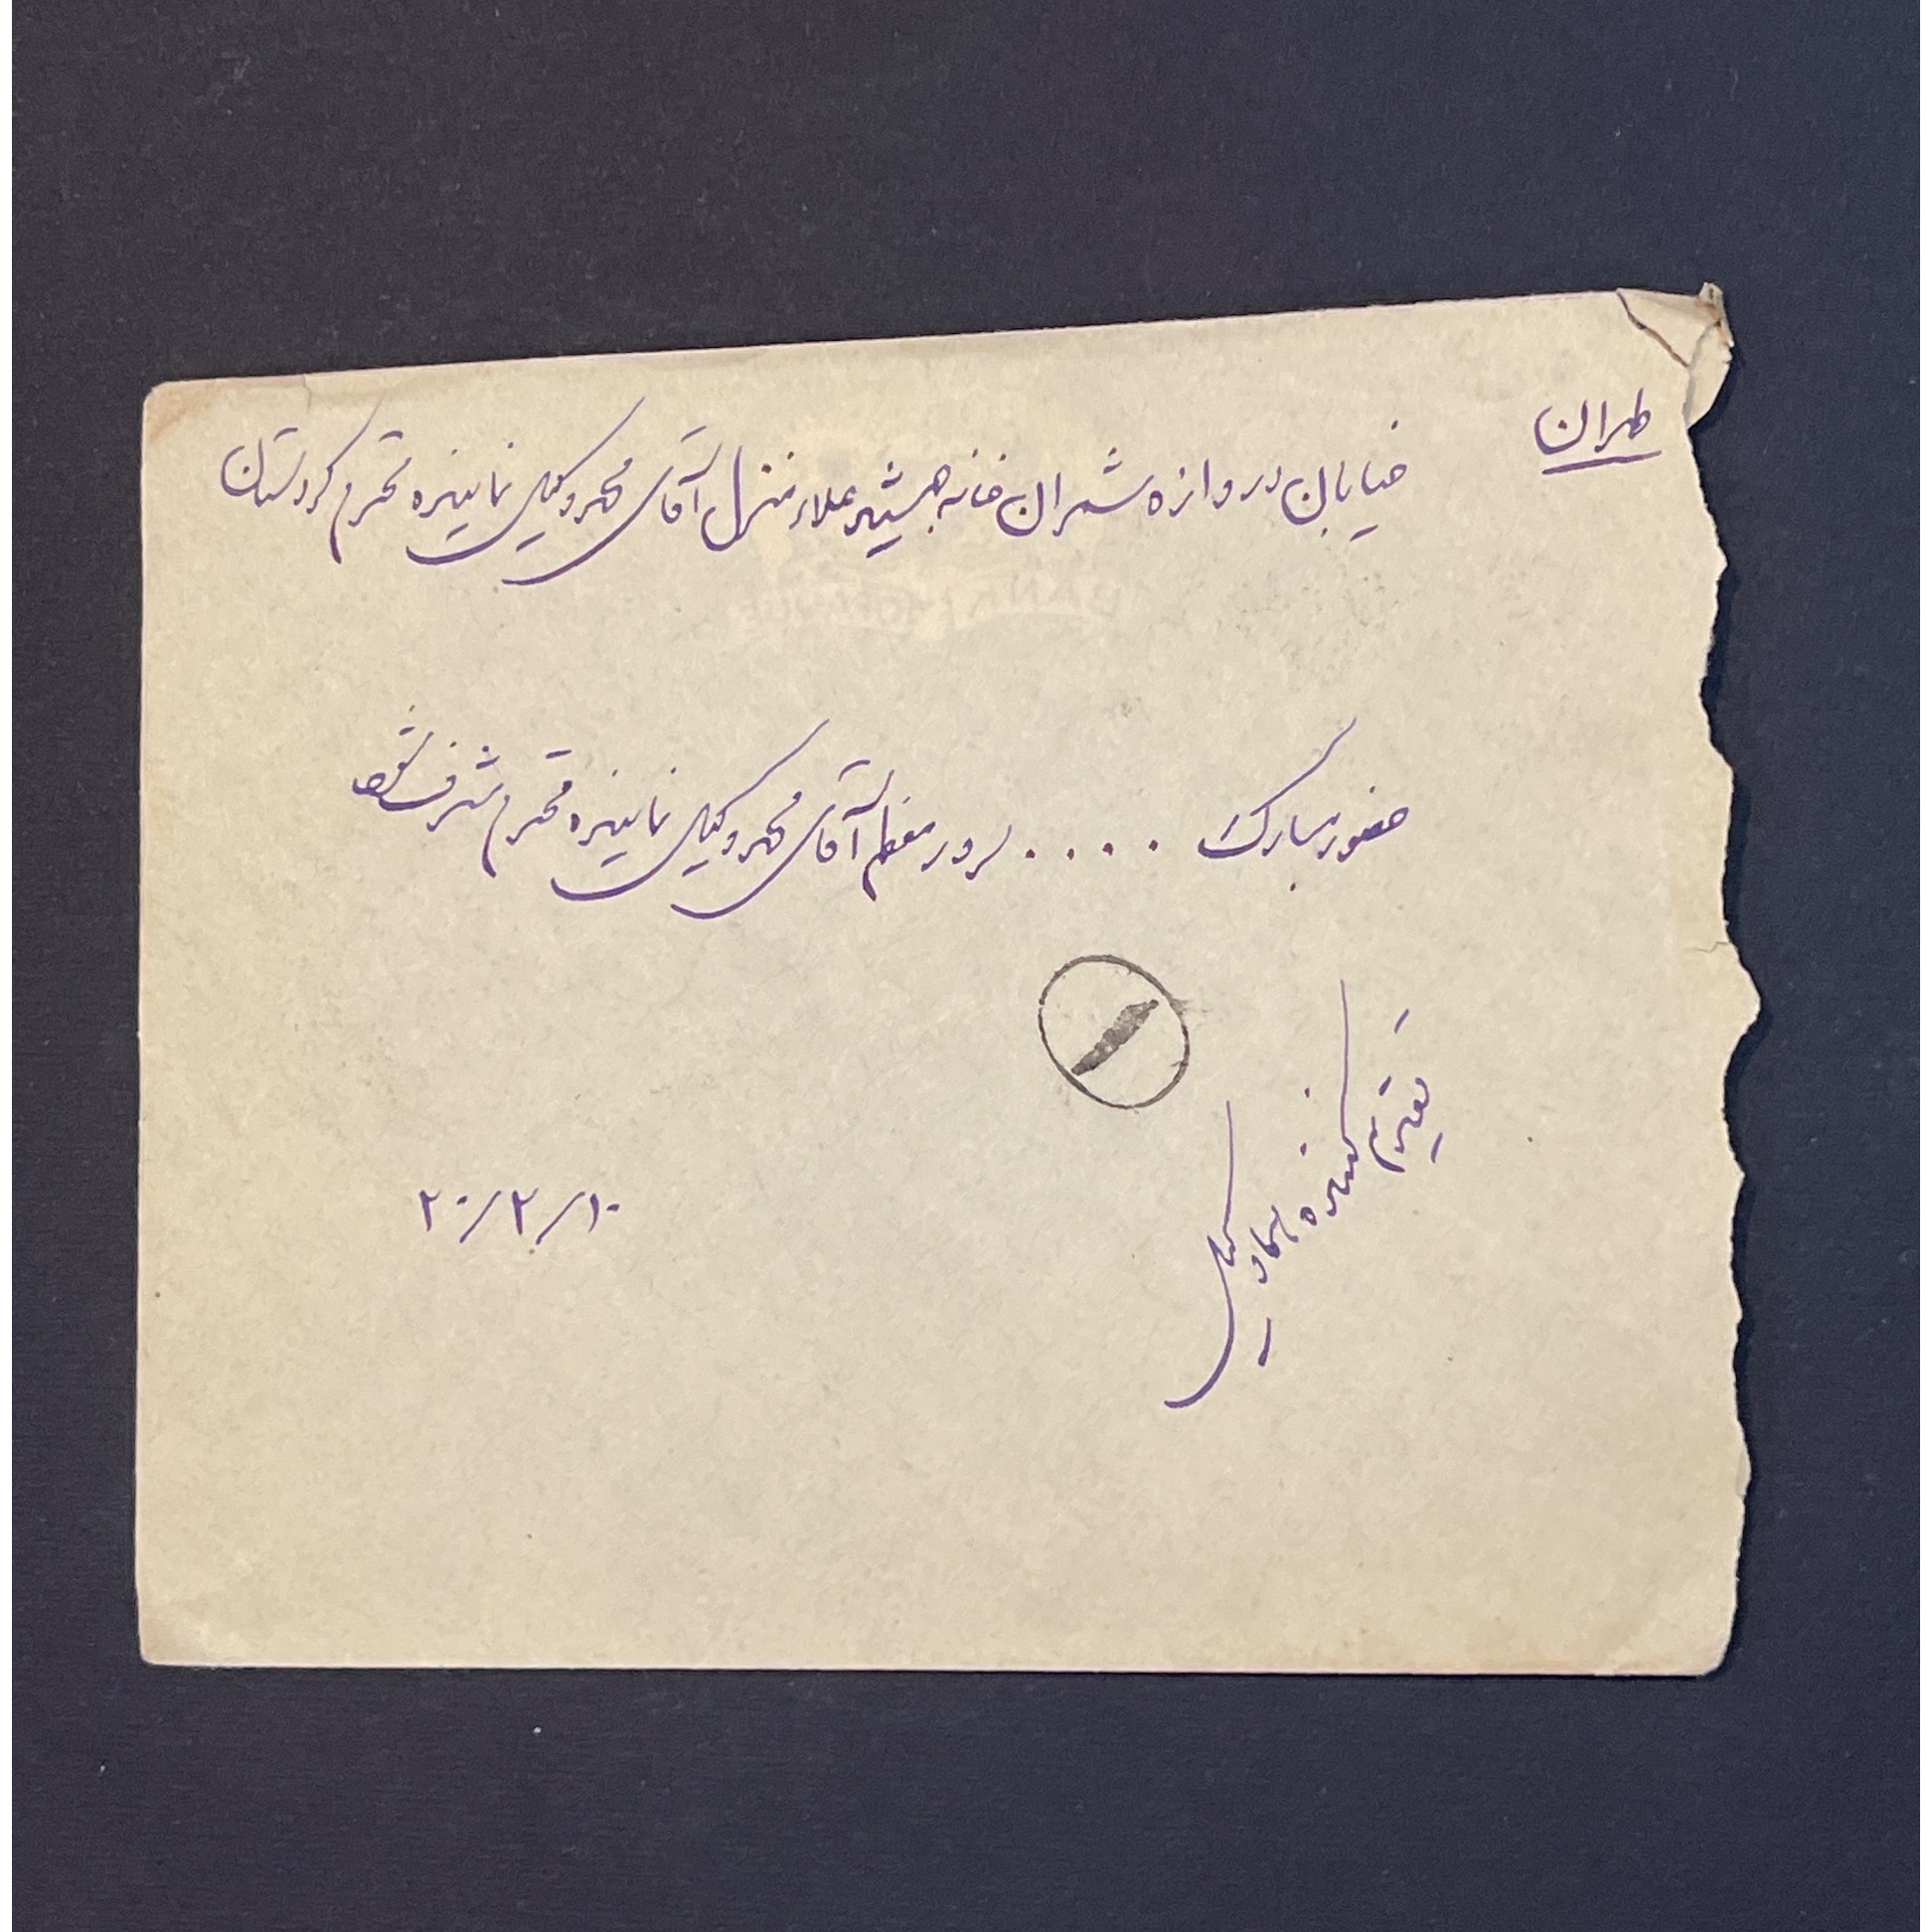 طهران
خیابان دروازه شمران خانه جمشید علاء منزل آقای محمد وکیل نماینده محترم کردستان
حضور مبارک .... سرور معظم آقای محمد وکیل نماینده محترم مشرف شود
۱
تقدیم کننده وکیل
۲۰/۲/۱۰